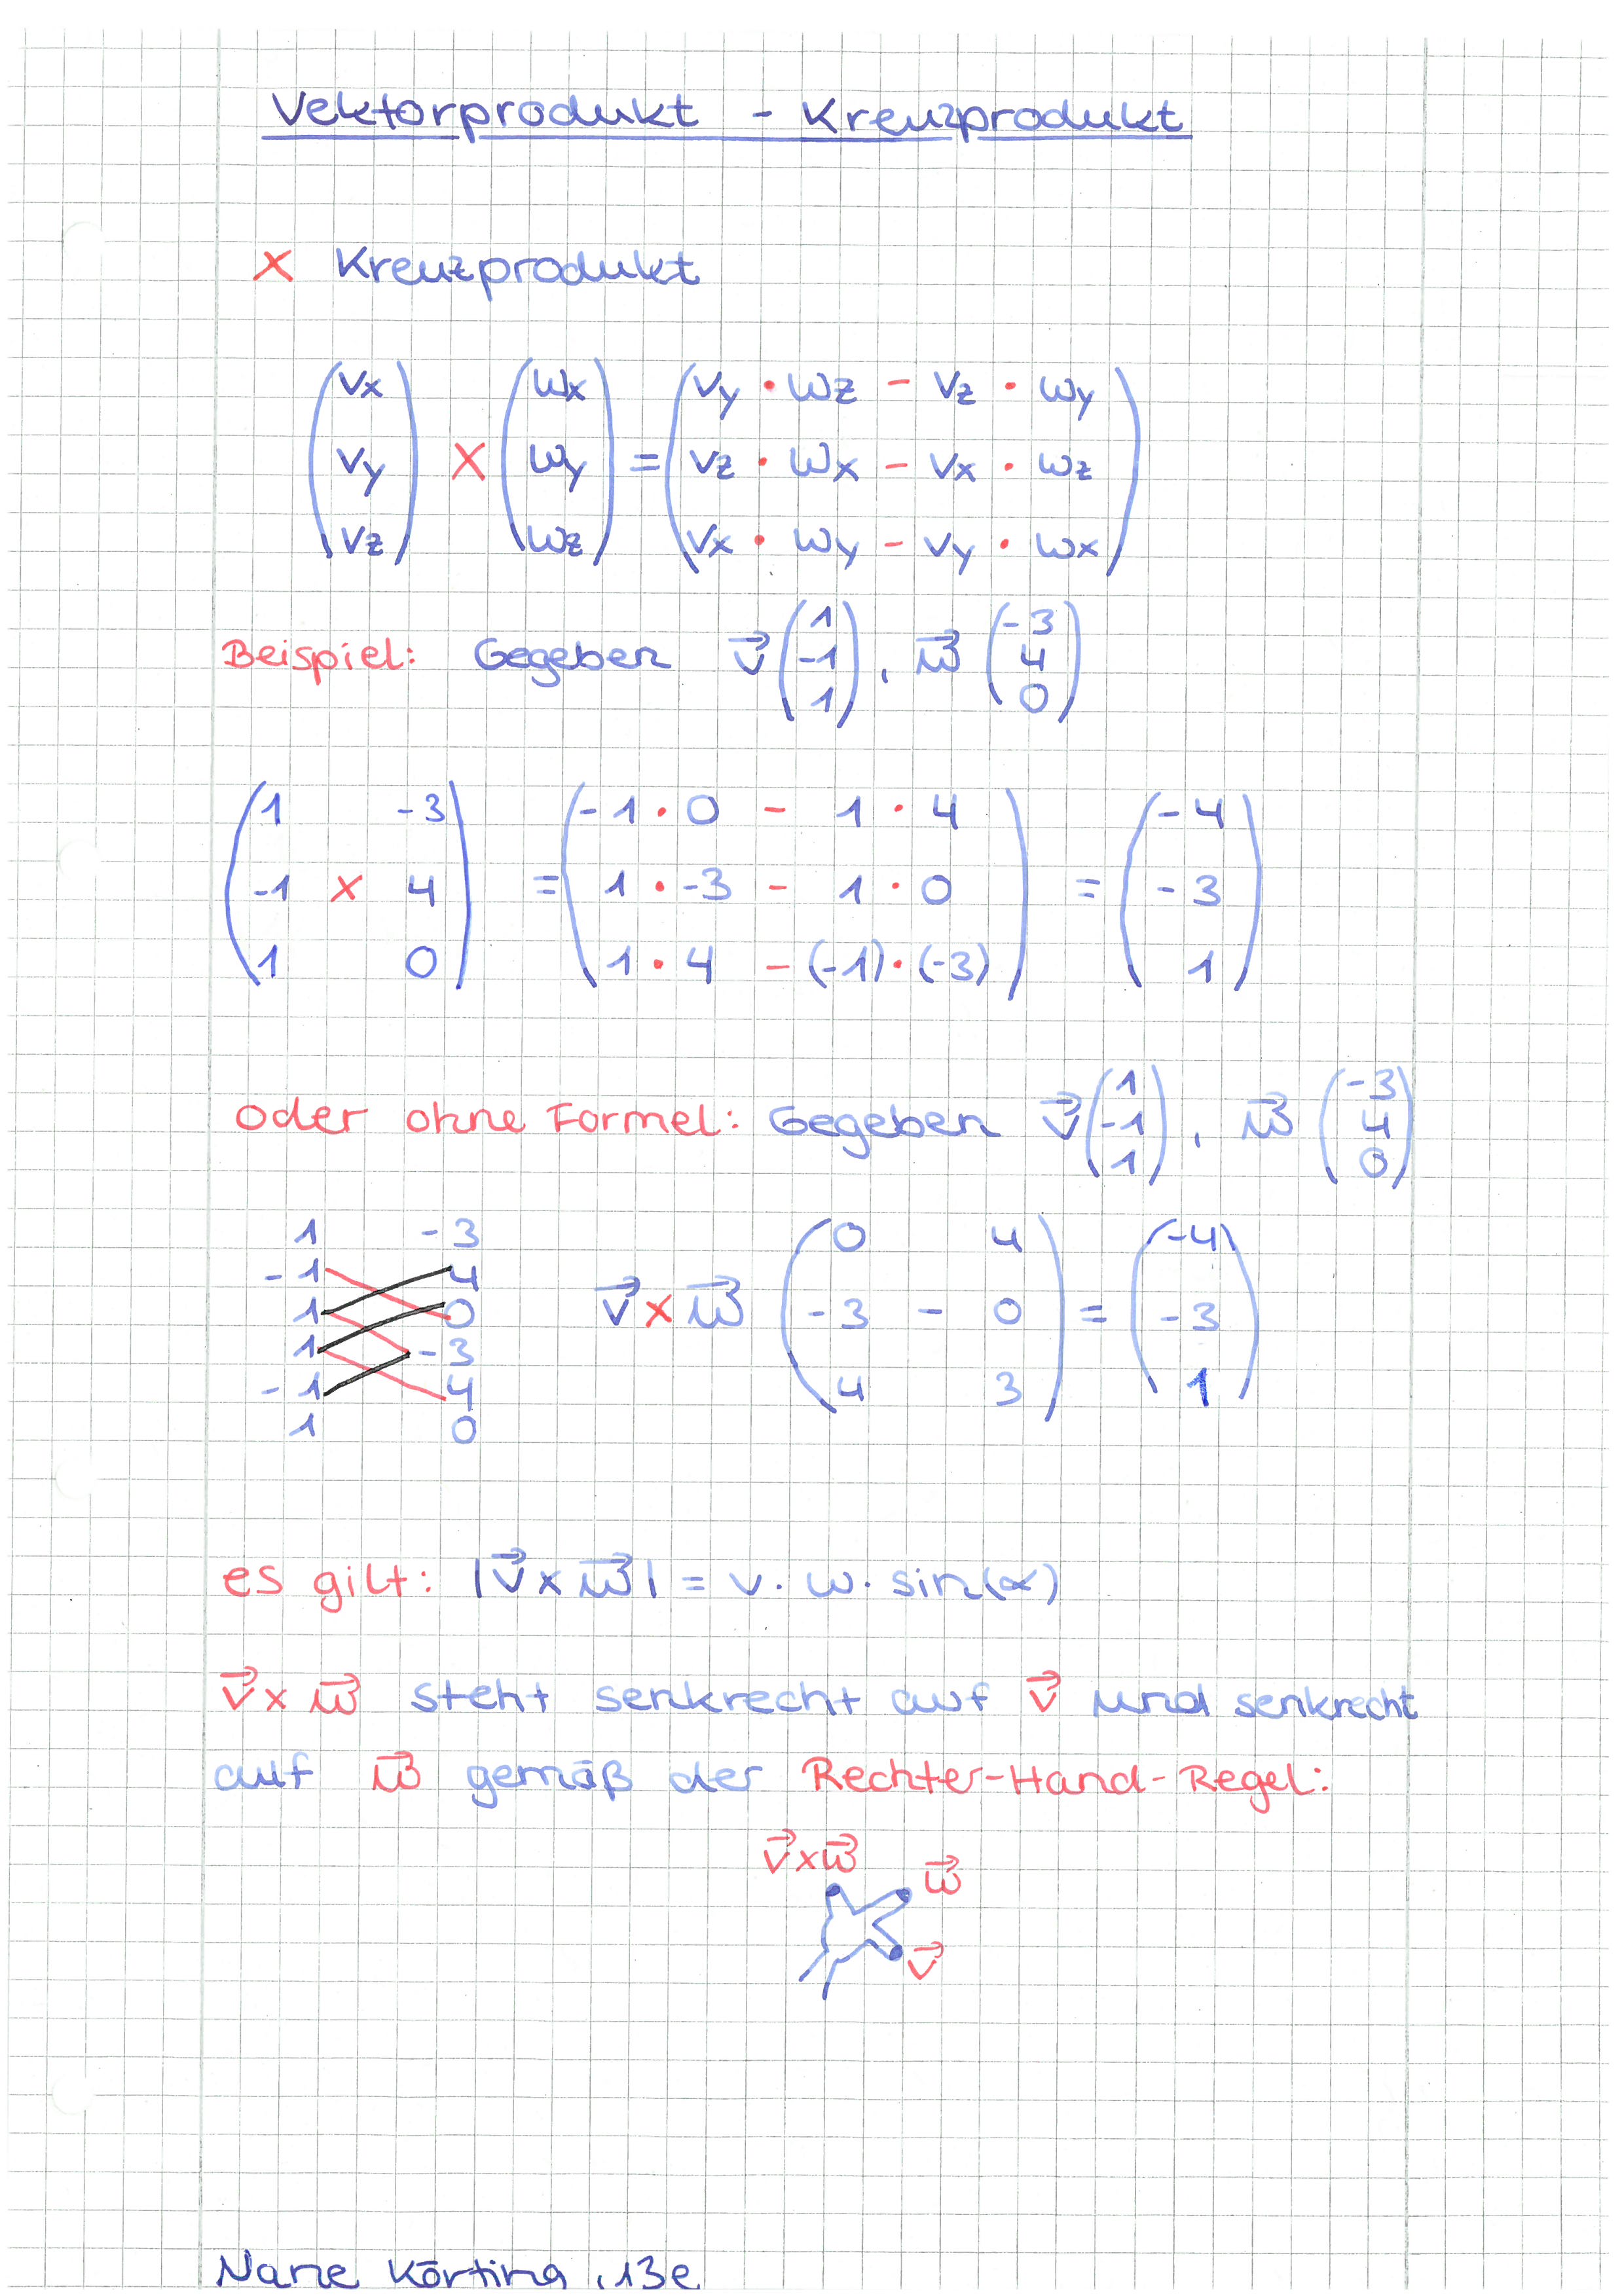 Vektorprodukt - Kreuzprodukt
x Kreuzprodukt
(vx) (wx) (vy · wz - vz · wy)
(vy) x (wy) = (vz · wx - vx · wz)
(vz) (wz) (vx · wy - vy · wx)
Beispiel: Gegeben v⃗ (1 -1 1), w⃗ (-3 4 0)
(1 -3) (-1 · 0 - 1 · 4) (-4)
(-1 x 4) = (1 · -3 - 1 · 0) = (-3)
(1 0) (1 · 4 - (-1) · (-3)) (1)
Oder ohne Formel: Gegeben v⃗ (1 -1 1), w⃗ (-3 4 0)
1 -3
-1 4
1 0
1 -3
-1 4
1 0
(0 4) (-4)
v⃗ x w⃗ (-3 - 0) = (-3)
(4 3) (1)
es gilt: |v⃗ x w⃗| = v · w · sin(α)
v⃗ x w⃗ steht senkrecht auf v⃗ und senkrecht
auf w⃗ gemäß der Rechter-Hand-Regel:
v⃗ x w⃗
w⃗
v⃗
Nane Körting, 13e